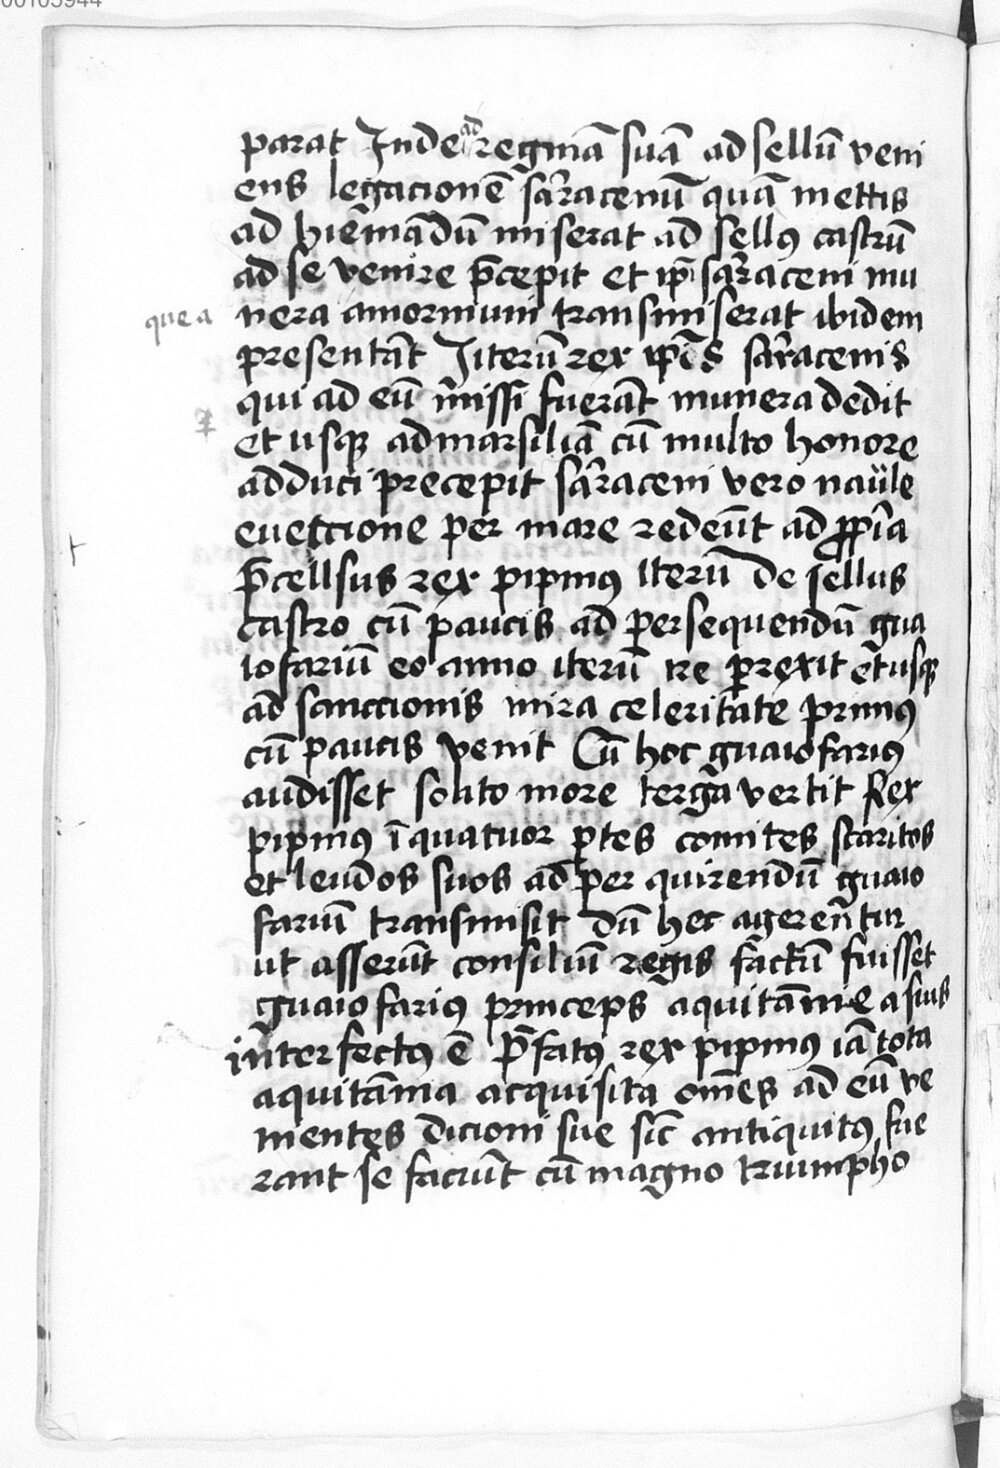 00105944
parat Inde ad regināˉ suā ad sellū veni
ens legacionē sarracenū quā mettis
ad hiemādū miserat ad sellꝰ castrū
ad se venire p̄cepit et ip̄i sarraceni mu
que a nera amormuni transmiserat ibidem
presentāt Iiterū rex ip̄is sarracenis
qui ad eū missi fuerāt munera dedit
et usqꝫ ad marsiliā cū multo honore
adduci precepit sarraceni vero navile
eveccione per mare redeūt ad ꝓpria
p̄cellsus rex pipinꝰ Iterū de sellus
castro cū paucis ad persequendū gua
iofariū eo anno iterū ire ꝑrexit et usqꝫ
ad sanccionis mira celeritate primꝰ
cū paucis venit Cū hoc guaiofariꝰ
audisset solito more terga vertit Rex
pipinꝰ ī quatuor ꝑtes comites scaritos
et leudos suos ad per quirendū guaio
fariū transmisit dū hec agerentur
ut asserūt consiliū regis factū fuisset
guaiofariꝰ princeps aquitanie a suis
interfectꝰ ē p̄fatꝰ rex pipinꝰ iā tota
aquitania acquisita om̄es ad eū ve
nientes dicioni sue sic̄ antiquitꝰ fue
rant se faciūt cū magno triumpho